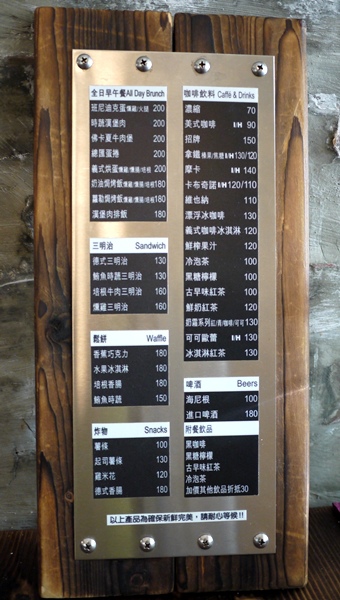 全日早午餐All Day Brunch
班尼迪克蛋燻雞/火腿 200
時蔬漢堡肉 200
佛卡夏牛肉堡 200
總匯蛋捲 200
義式烘蛋燻雞/燻腸/培根 200
奶油焗烤飯燻雞/燻腸/培根180
蘿勒焗烤飯燻雞/燻腸/培根180
漢堡肉排飯 180
三明治 Sandwich
德式三明治 130
鮪魚時蔬三明治 130
培根牛肉三明治 160
燻雞三明治 160
鬆餅 Waffle
香蕉巧克力 180
水果冰淇淋 180
培根香腸 180
鮪魚時蔬 150
炸物 Snacks
薯條 100
起司薯條 130
雞米花 120
德式香腸 180
咖啡飲料 Caffé & Drinks
濃縮 70
美式咖啡 I/H 90
招牌 150
拿鐵 榛果/焦糖 I/H130/120
摩卡 I/H 140
卡布奇諾 I/H120/110
維也納 110
漂浮冰咖啡 130
義式咖啡冰淇淋 120
鮮榨果汁 120
冷泡茶 100
黑糖檸檬 100
古早味紅茶 100
鮮奶紅茶 120
奶霜系列紅/青/咖啡/可可 130
可可歐蕾 I/H 130
冰淇淋紅茶 130
啤酒 Beers
海尼根 100
進口啤酒 180
附餐飲品
黑咖啡
黑糖檸檬
古早味紅茶
冷泡茶
加價其他飲品折抵30
以上產品為確保新鮮完美，請耐心等候!!